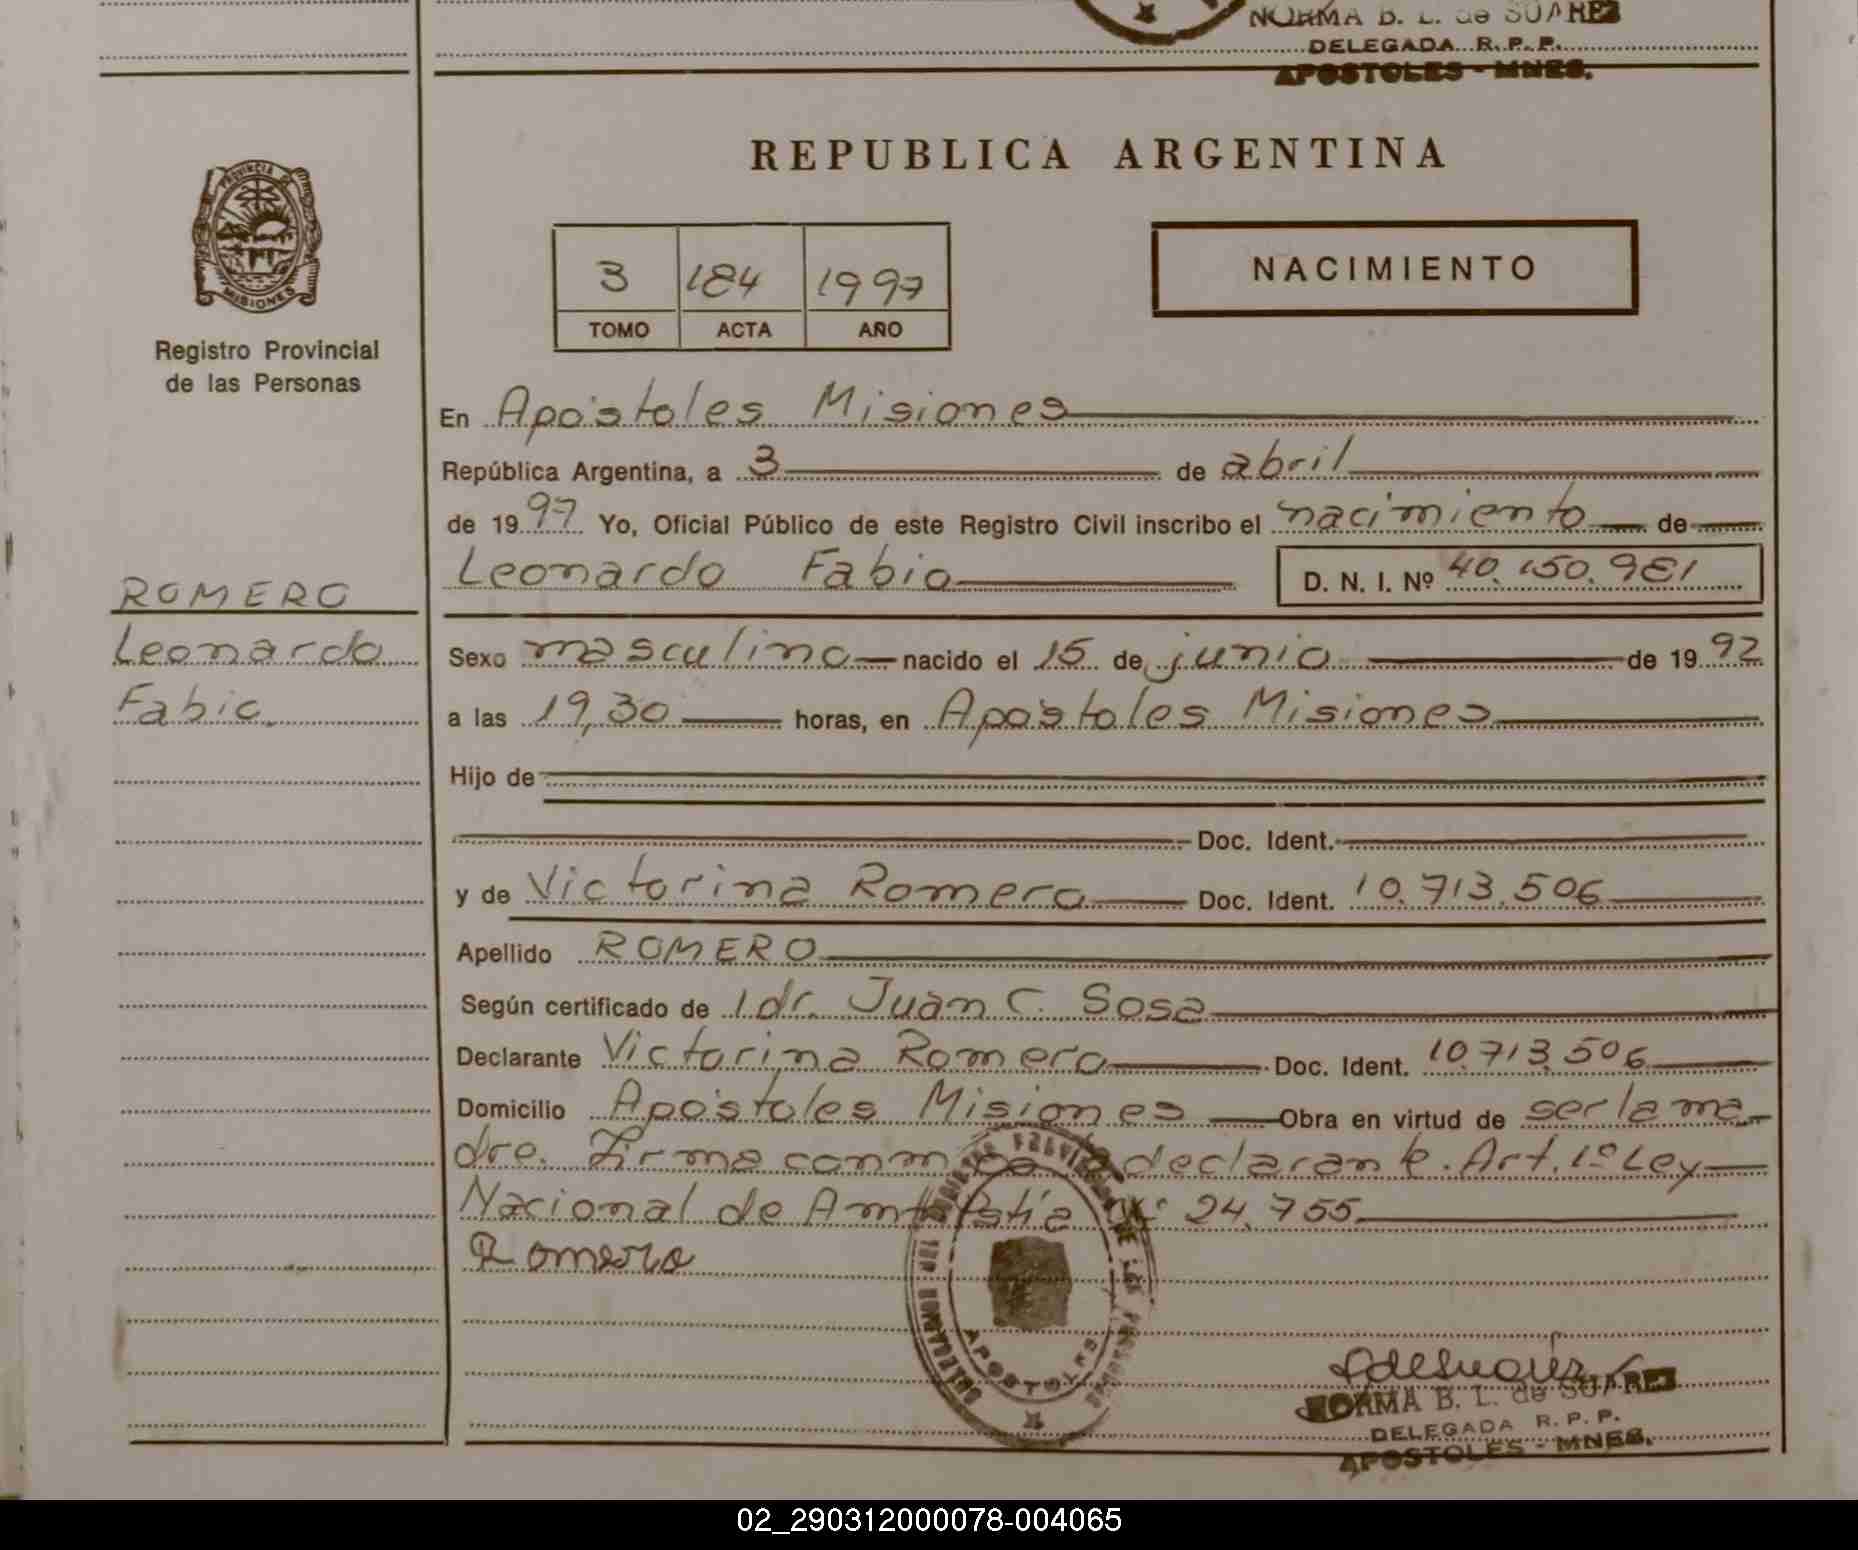 NORMA B. L. de SUAREZ
DELEGADA R. P. P.
APOSTOLES - MNES.
PROVINCIA DE
MISIONES
Registro Provincial
de las Personas
REPUBLICA ARGENTINA
3 184 1997
TOMO ACTA AÑO
NACIMIENTO
En Apóstoles Misiones
República Argentina, a 3 de abril
de 1997 Yo, Oficial Público de este Registro Civil inscribo el nacimiento de
Leonardo Fabio D. N. I. Nº 40.150.981
ROMERO
Leonardo
Fabio.
Sexo masculino nacido el 15 de junio de 1992
a las 19,30 horas, en Apóstoles Misiones
Hijo de
Doc. Ident.
y de Victorina Romero Doc. Ident. 10.713.506
Apellido ROMERO
Según certificado de 1 dr. Juan C. Sosa
Declarante Victorina Romero Doc. Ident. 10.713.506
Domicilio Apóstoles Misiones Obra en virtud de ser la ma-
dre. Firma conmigo la declarante. Art. 1º Ley
Nacional de Amnistía Nº 24.755
Romero
APOSTOLES
NORMA B. L. de SUAREZ
DELEGADA R. P. P.
APOSTOLES - MNES.
02_290312000078-004065